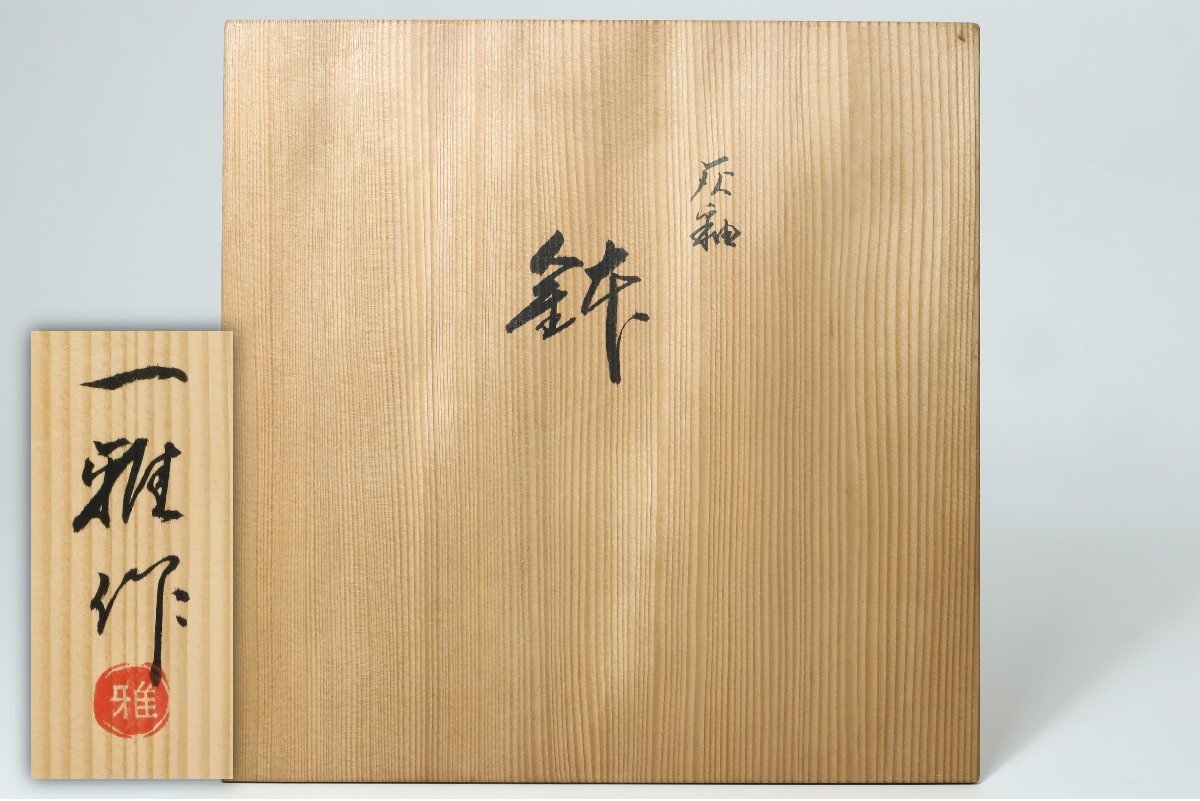 灰釉
鉢
一雅作
雅